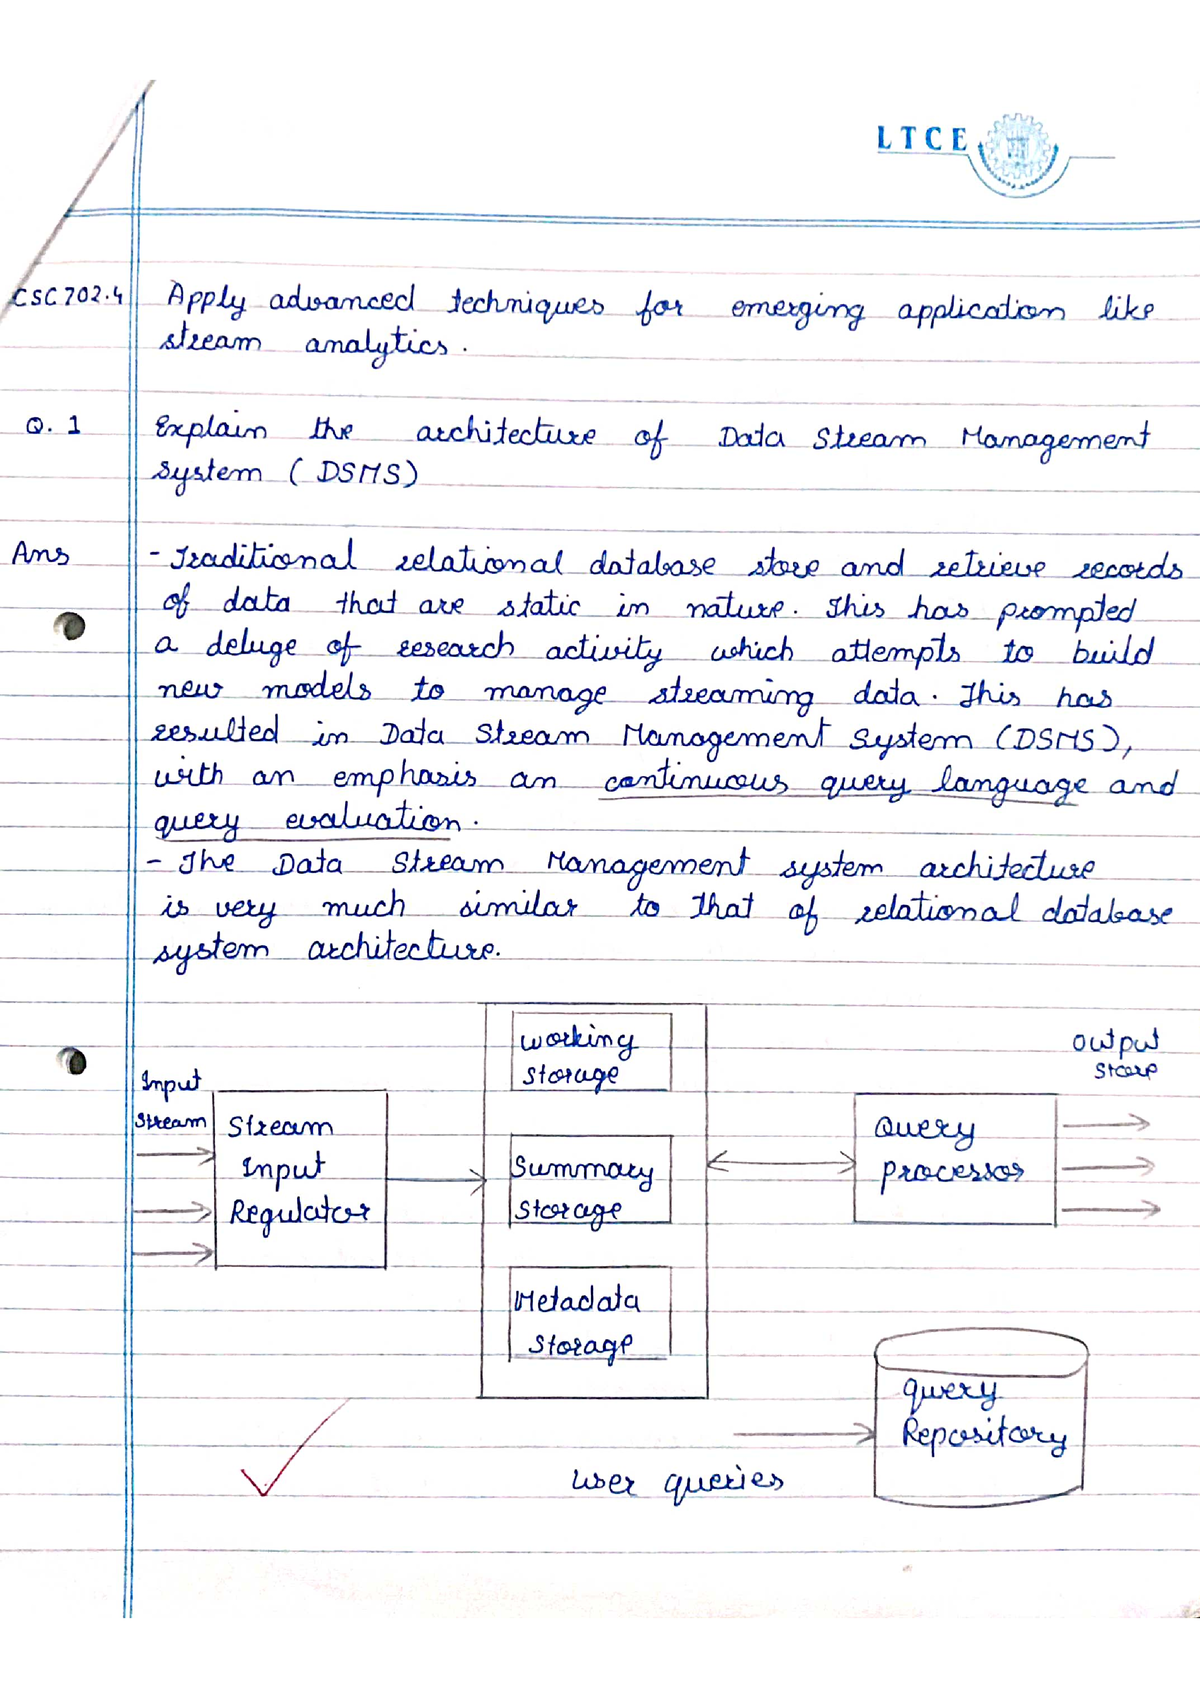 LTCE
CSC702.4 Apply advanced techniques for emerging application like
stream analytics.
Q. 1 Explain the architecture of Data Stream Management
System ( DSMS)
Ans - Traditional relational database store and retrieve records
of data that are static in nature. This has prompted
a deluge of research activity which attempts to build
new models to manage streaming data. This has
resulted in Data Stream Management System (DSMS),
with an emphasis an continuous query language and
query evaluation.
- The Data Stream Management system architecture
is very much similar to that of relational database
system architecture.
Input
Stream
Stream
Input
Regulator
Working
Storage
Summary
Storage
Metadata
Storage
Query
processor
output
user queries
query
Repository